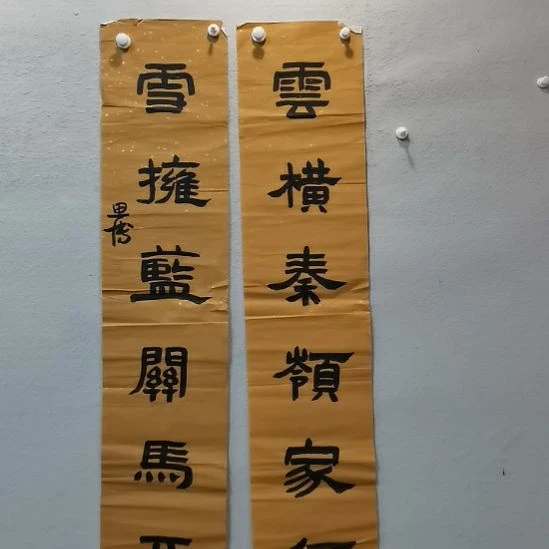 雲橫秦嶺家
雪擁藍關馬